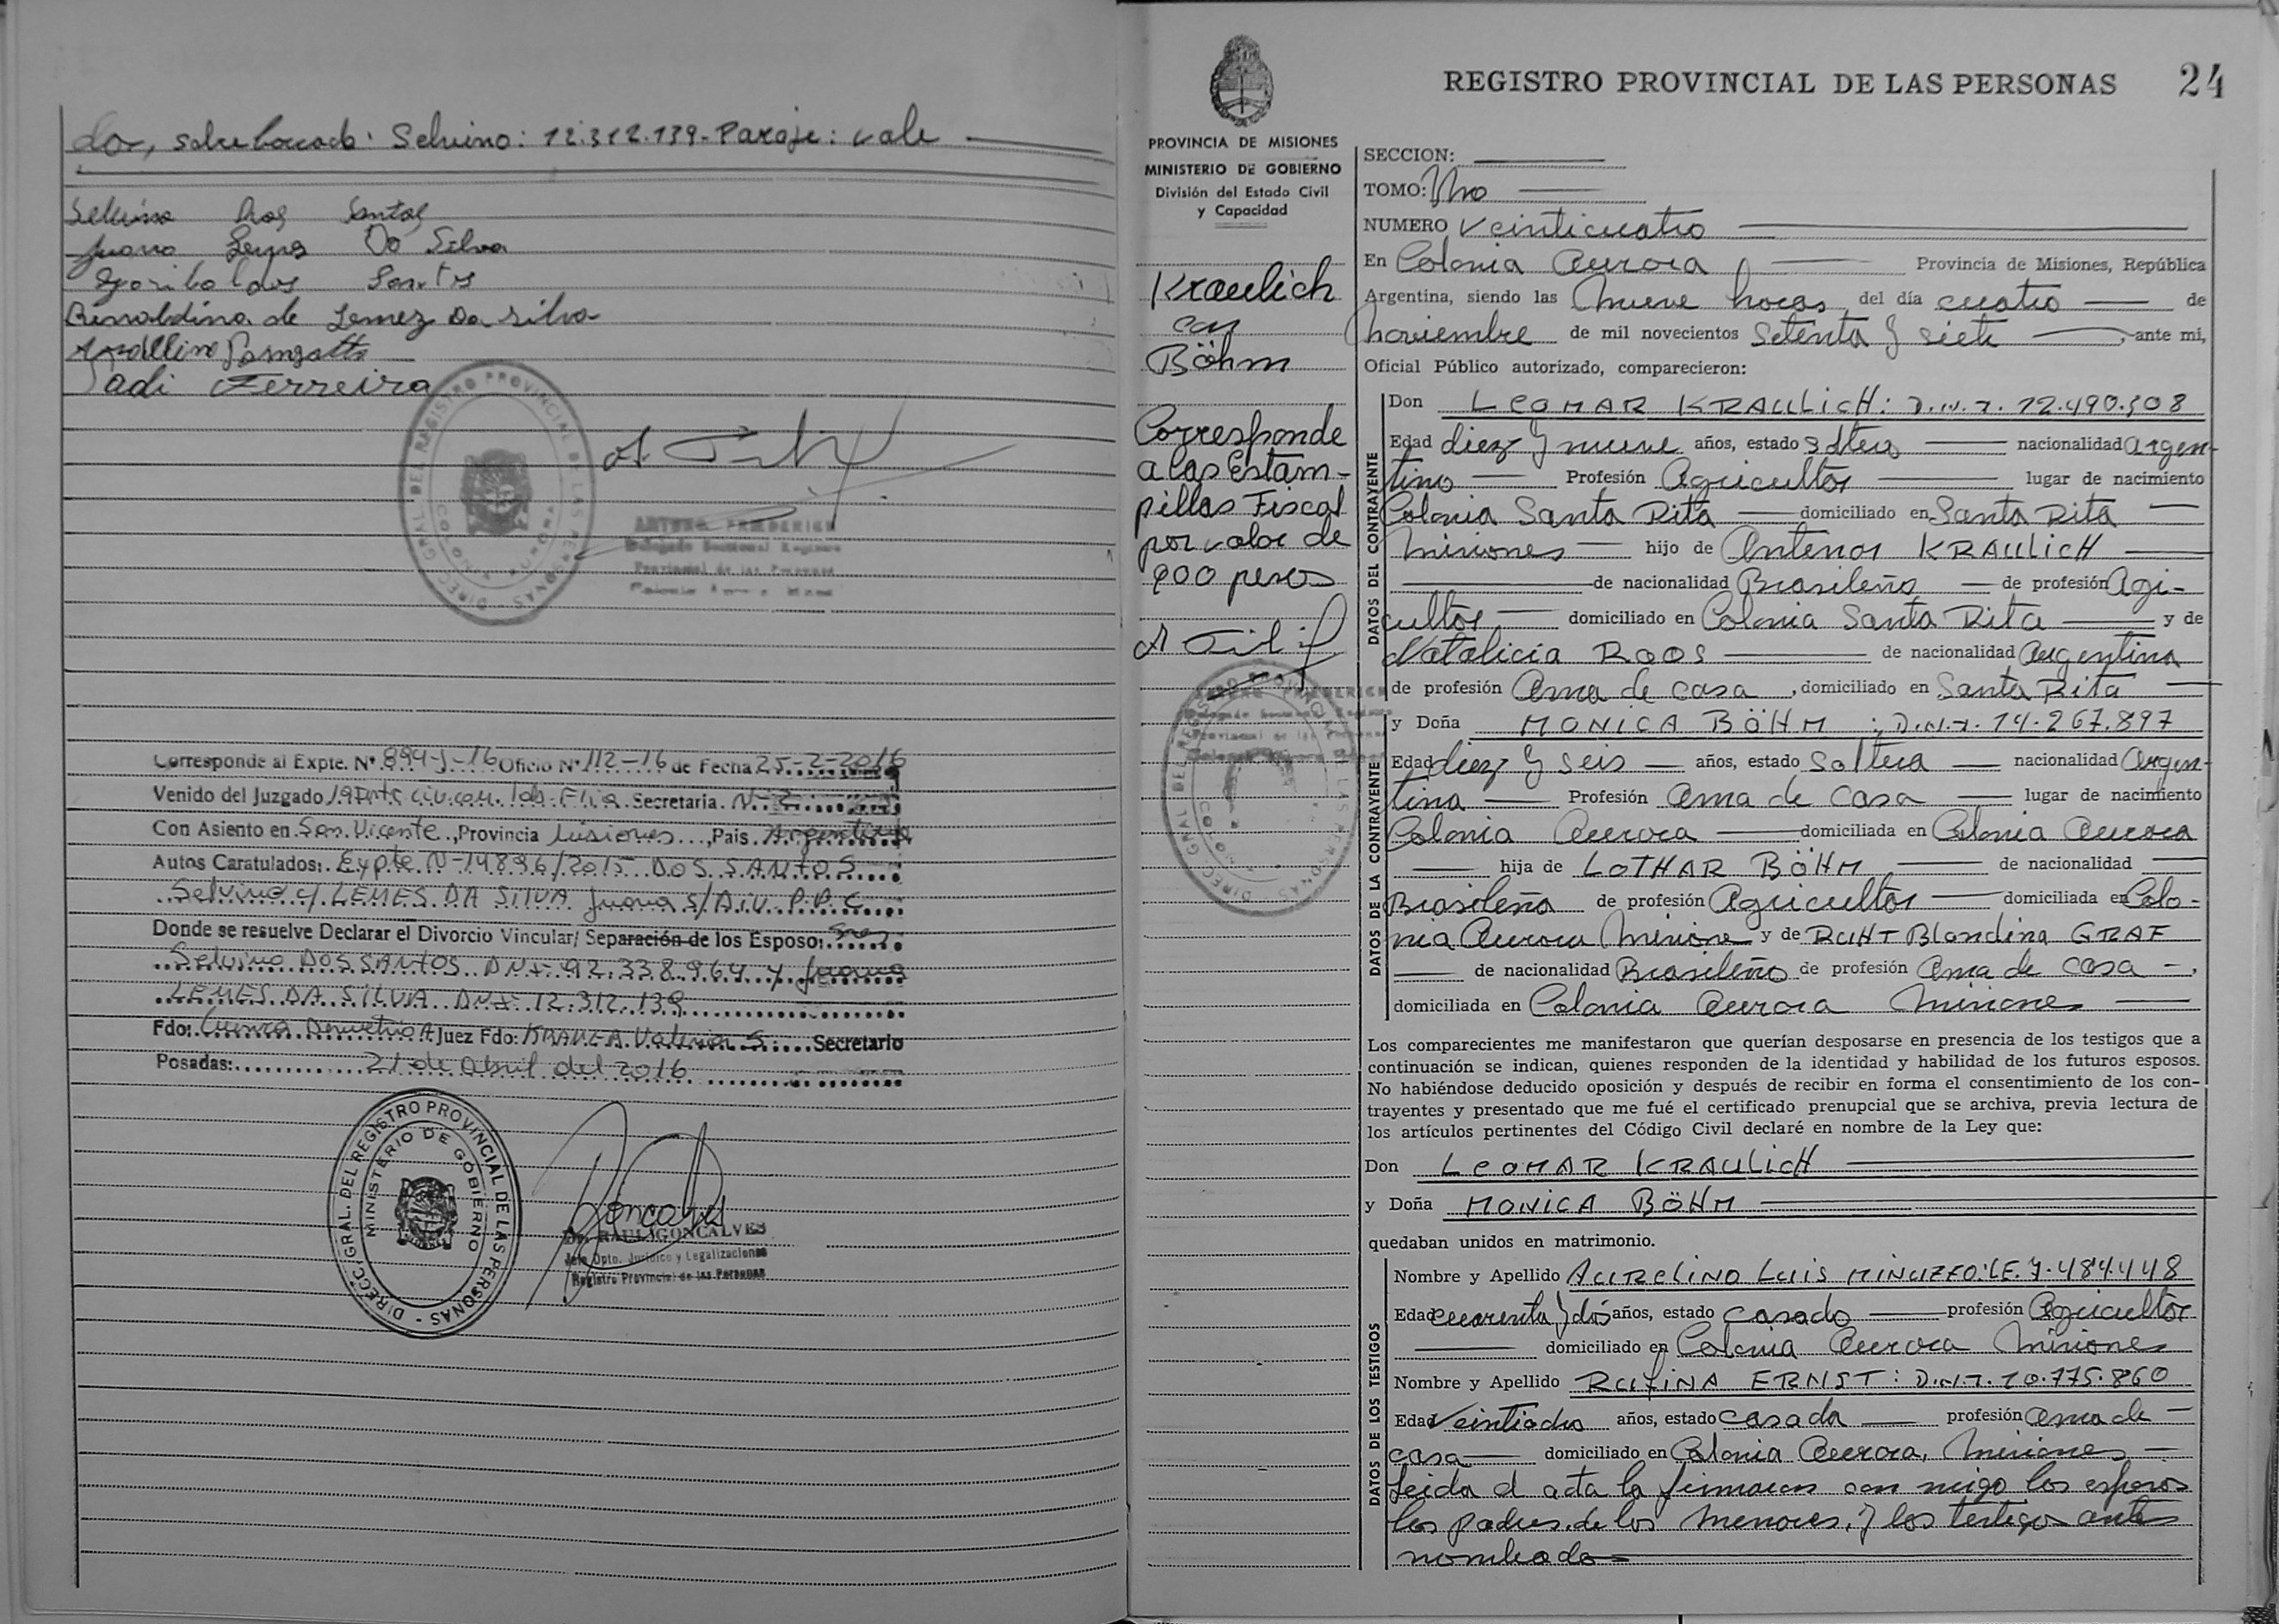 dor, sobre borrado: Selvino: 12.312.139- Paraje: vale
Selvino Dos Santos
Juana Lemes Da Silva
Garibal dos Santos
de Lemez Da silva
Jadi Ferreira
DIRECC. GRAL. DEL REGISTRO PROVINCIAL DE LAS PERSONAS
ARTURO FREDERICH
Delegado Seccional Registro
Provincial de las Personas
Colonia Aurora Mnes
Corresponde al Expte. Nº 894-J-16 Oficio Nº 112-16 de Fecha 25-2-2016
Venido del Juzgado 1º Civ. com. lab. Flia. Secretaria. Nº 2
Con Asiento en San. Vicente., Provincia Misiones..., Pais. Argentina
Autos Caratulados: Expte. Nº 14896/2015 DOS SANTOS
Selvino c/ LEMES DA SILVA Juana S/ Div. P.P.C.
Donde se resuelve Declarar el Divorcio Vincular/ Separación de los Esposo: Sres
Selvino DOS SANTOS DNI: 92.338.964 y Juana
LEMES DA SILVA DNI: 12.312.139
Fdo: Cuenca Demetrio A Juez Fdo: Valeria S. Secretario
Posadas: 21 de abril del 2016
DIRECC. GRAL. DEL REGISTRO PROVINCIAL DE LAS PERSONAS
MINISTERIO DE GOBIERNO
Goncalves
Dr. RAUL GONCALVES
Jefe Dpto. Jurídico y Legalizaciones
Registro Provincial de las Personas
REGISTRO PROVINCIAL DE LAS PERSONAS 24
PROVINCIA DE MISIONES
MINISTERIO DE GOBIERNO
División del Estado Civil
y Capacidad
Kraulich
con
Böhm
Corresponde
a las Estam-
pillas Fiscal
por valor de
900 pesos
SECCION:
TOMO: Uno
NUMERO veinticuatro
En Colonia Aurora Provincia de Misiones, República
Argentina, siendo las nueve horas del día cuatro de
noviembre de mil novecientos Setenta y siete, ante mi,
Oficial Público autorizado, comparecieron:
DATOS DEL CONTRAYENTE
Don LEOMAR KRAULICH: D.N.I. 12.490.508
Edad diez y nueve años, estado soltero nacionalidad argen-
tino Profesión Agricultor lugar de nacimiento
Colonia Santa Rita domiciliado en Santa Rita
Misiones hijo de Antenor KRAULICH
de nacionalidad Brasileño de profesión Agri-
cultor domiciliado en Colonia Santa Rita y de
Natalicia ROOS de nacionalidad Argentina
de profesión Ama de casa, domiciliado en Santa Rita
DATOS DE LA CONTRAYENTE
y Doña MONICA BÖHM: D.N.I. 14.267.897
Edad diez y seis años, estado soltera nacionalidad Argen-
tina Profesión Ama de Casa lugar de nacimiento
Colonia Aurora domiciliada en Colonia Aurora
hija de LOTHAR BÖHM de nacionalidad
Brasileña de profesión Agricultor domiciliada en Colo-
nia Aurora Misione y de RUHT Blandina GRAF
de nacionalidad Brasileña de profesión Ama de casa -,
domiciliada en Colonia Aurora Misiones
Los comparecientes me manifestaron que querían desposarse en presencia de los testigos que a
continuación se indican, quienes responden de la identidad y habilidad de los futuros esposos.
No habiéndose deducido oposición y después de recibir en forma el consentimiento de los con-
trayentes y presentado que me fué el certificado prenupcial que se archiva, previa lectura de
los artículos pertinentes del Código Civil declaré en nombre de la Ley que:
Don LEOMAR KRAULICH
y Doña MONICA BÖHM
quedaban unidos en matrimonio.
DATOS DE LOS TESTIGOS
Nombre y Apellido AURELINO Luis MINUZZO: LE. 7.484.448
Edad cuarenta y dos años, estado casado profesión Agricultor
domiciliado en Colonia Aurora Misiones
Nombre y Apellido RUfINA ERNST: D.N.I. 10.775.860
Edad Veintiocho años, estado casada profesión ama de
casa domiciliado en Colonia Aurora, Misiones
Leida el acta la firmaron con migo los esposos
los padres de los menores, y los testigos antes
nombrados